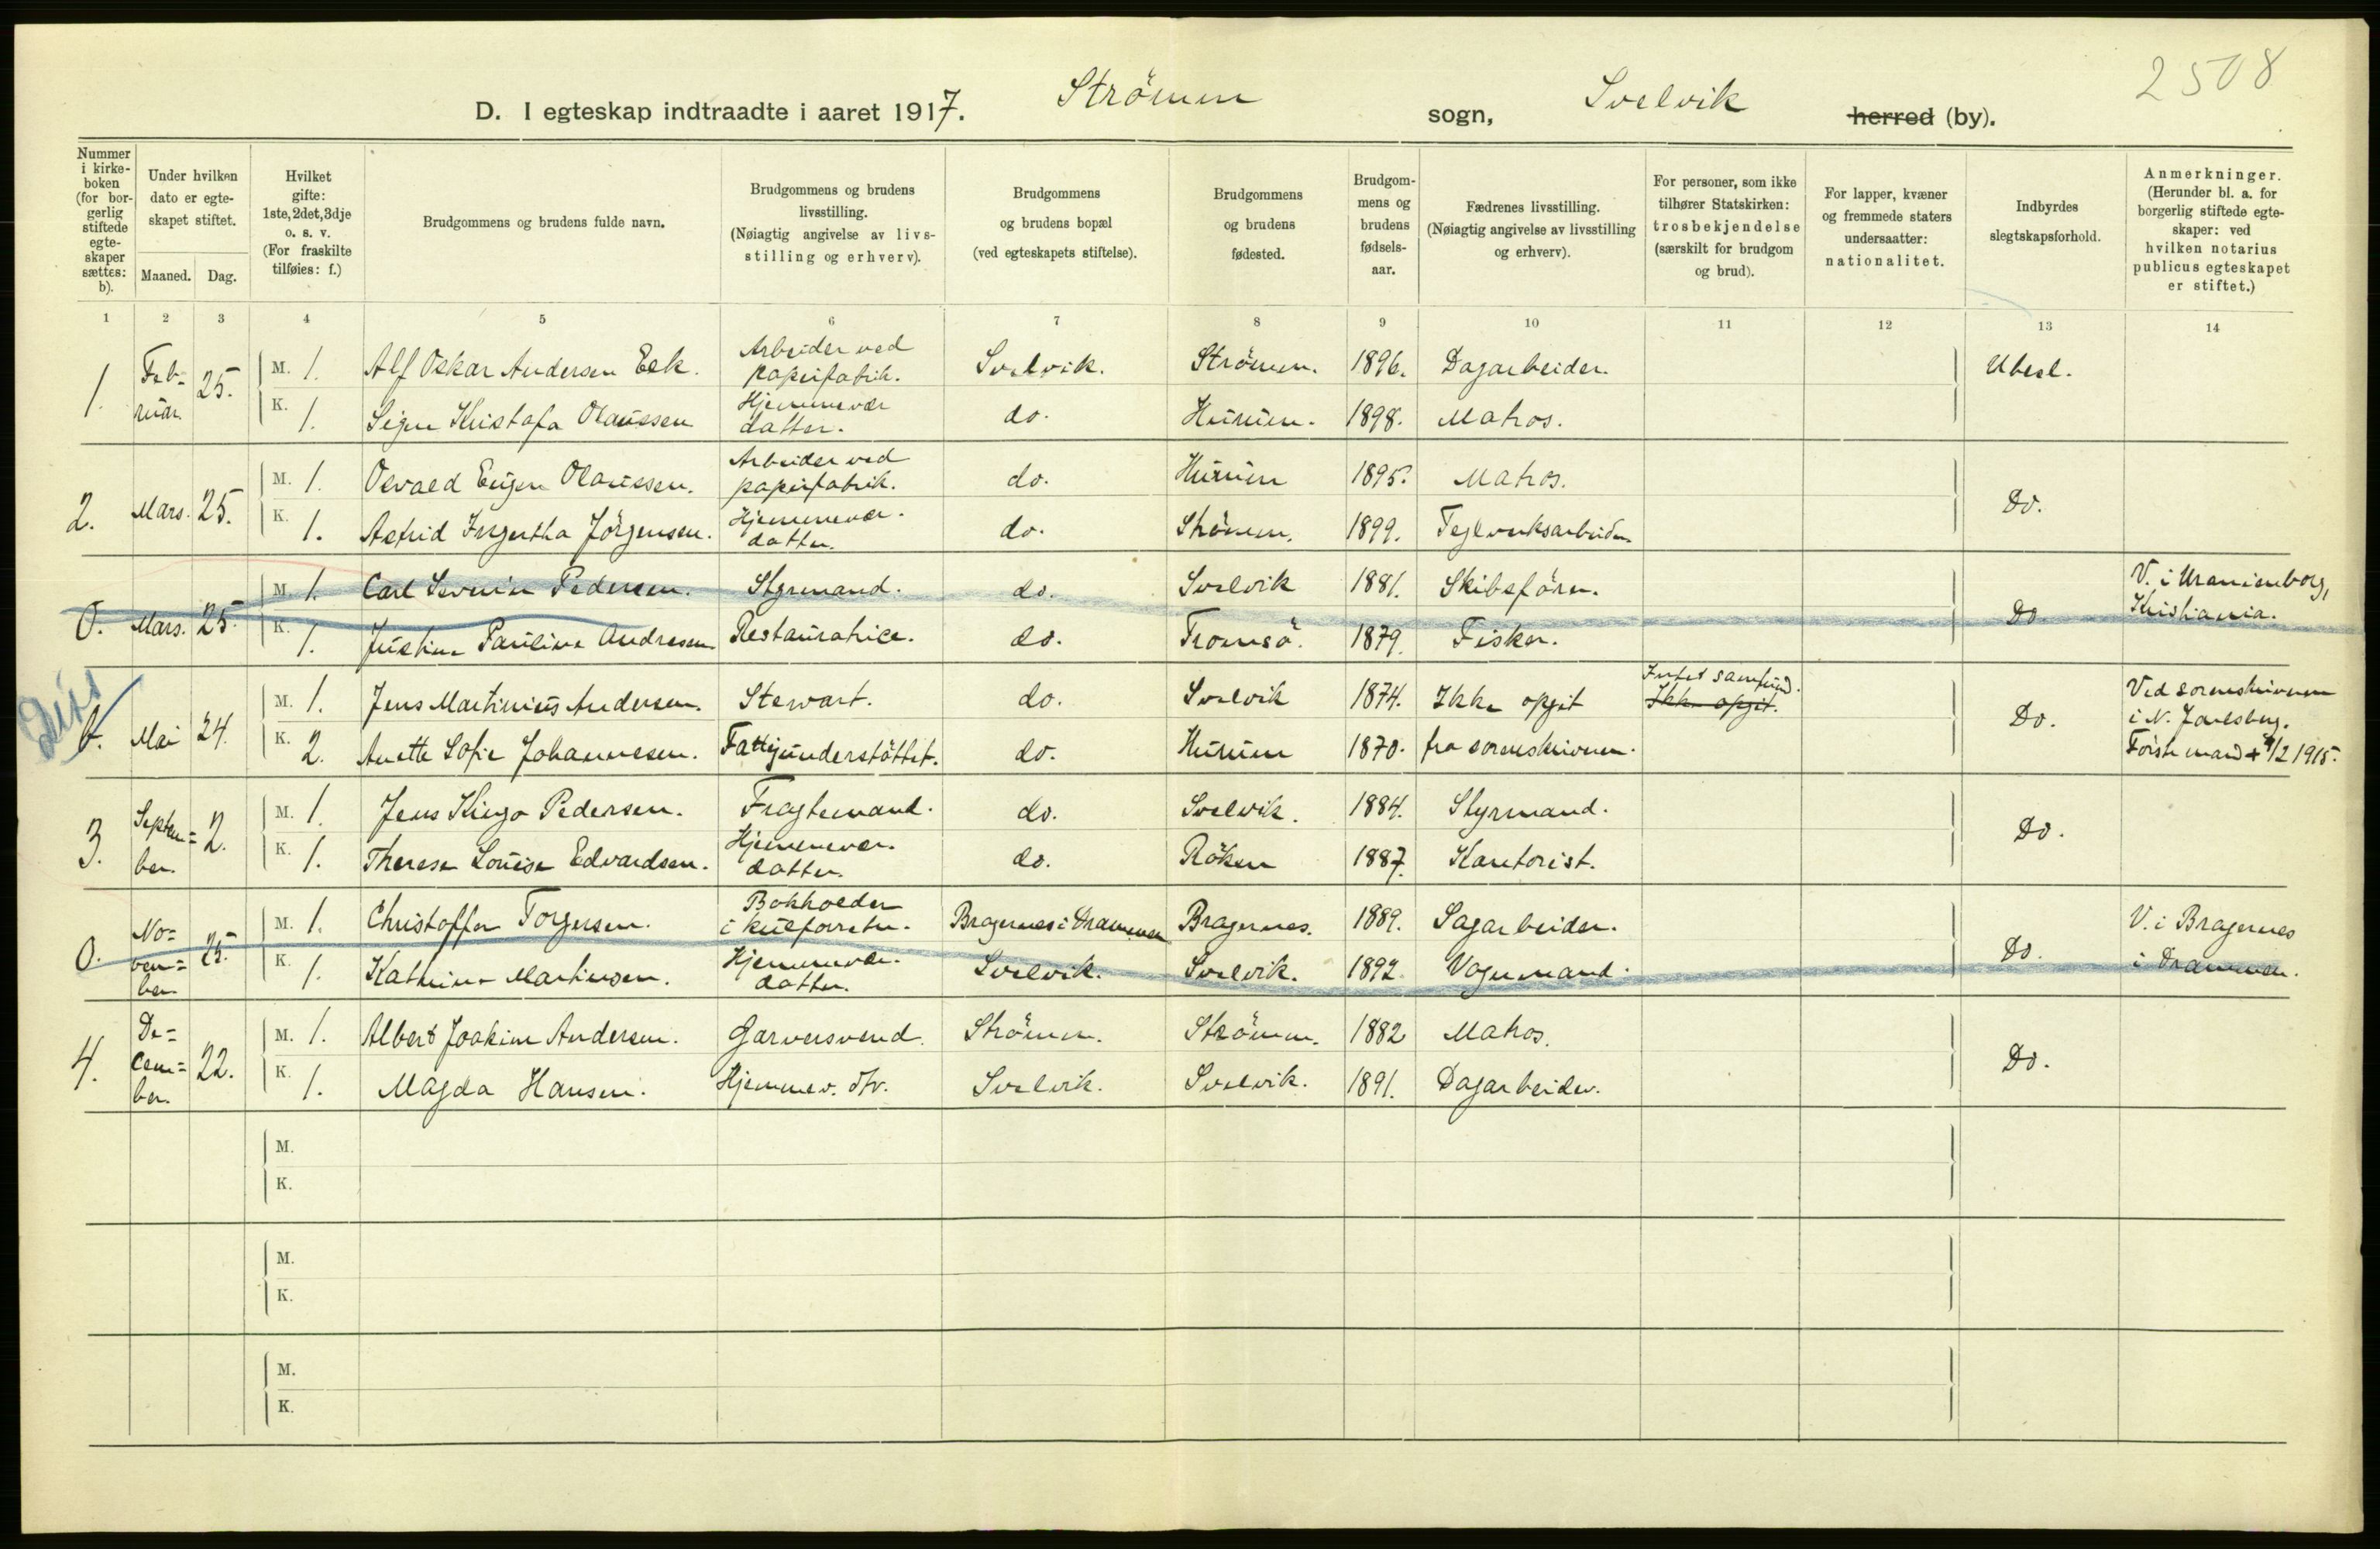 2508
D. I egteskap indtraadte i aaret 1917. Strömm sogn, Svelvik herred (by).
Nummer i kirkeboken (for borgerlig stiftede egteskaper sættes: b).
Under hvilken dato er egteskapet stiftet.
Maaned. Dag.
Hvilket gifte: 1ste, 2det, 3dje o. s. v. (For fraskilte tilføies: f.)
Brudgommens og brudens fulde navn.
Brudgommens og brudens livsstilling. (Nøiagtig angivelse av livsstilling og erhverv).
Brudgommens og brudens bopæl (ved egteskapets stiftelse).
Brudgommens og brudens fødested.
Brudgommens og brudens fødselsaar.
Fædrenes livsstilling. (Nøiagtig angivelse av livsstilling og erhverv).
For personer, som ikke tilhører Statskirken: trosbekjendelse (særskilt for brudgom og brud).
For lapper, kvæner og fremmede staters undersaatter: nationalitet.
Indbyrdes slegtskapsforhold.
Anmerkninger. (Herunder bl. a. for borgerlig stiftede egteskaper: ved hvilken notarius publicus egteskapet er stiftet.)
1 2 3 4 5 6 7 8 9 10 11 12 13 14
1. Februar. 25. M. 1. Alf Oskar Andersen Eek. Arbeider ved papirfabrik. Svelvik. Strömm. 1896. Dagarbeider. Ubesl.
K. 1. Signe Kristofa Olaussen Hjemmevær datter. do. Hurum. 1898. Matros.
2. Mars. 25. M. 1. Osvald Eugen Olaussen. Arbeider ved papirfabrik. do. Hurum 1895. Matros. Do.
K. 1. Astrid Ingertha Jörgensen. Hjemmevær. datter. do. Strömm. 1899. Teglverksarbeider
0. Mars. 25. M. 1. Carl Severin Pedersen. Styrmand. do. Svelvik 1881. Skibsförer. Do. V. i Uranienborg, Kristiania.
K. 1. Justine Pauline Andresen Restauratrice. do. Tromsö. 1879. Fisker.
b. Mai 24. M. 1. Jens Martinius Andersen. Stewart. do. Svelvik 1874. Ikke opgit Intet samfund. Ikke opgit. Do. Ved sorenskriveren i N. Jarlsberg.
K. 2. Anette Sofie Johannesen. Fattigunderstöttet. do. Hurum 1870. fra sorenskriveren. Förste mand + /2 1915.
3. September. 2. M. 1. Jens Kingo Pedersen. Fragtemand. do. Svelvik. 1884. Styrmand. Do.
K. 1. Therese Louise Edvardsen. Hjemmevær. datter. do. Röken 1887. Kontorist.
0. November 25. M. 1. Christoffer Torgersen. Bokholder i kulforretn. Bragernes i Drammen Bragernes. 1889. Sagarbeider. Do. V. i Bragernes i Drammen.
K. 1. Kathrine Martinsen. Hjemmevær. datter. Svelvik. Svelvik. 1892. Vognmand.
4. December. 22. M. 1. Albert Joakim Andersen. Garversvend. Strömm. Strömm. 1882 Matros. Do.
K. 1. Magda Hansen. Hjemmev. dtr. Svelvik. Svelvik. 1891. Dagarbeider.
M.
K.
M.
K.
M.
K.